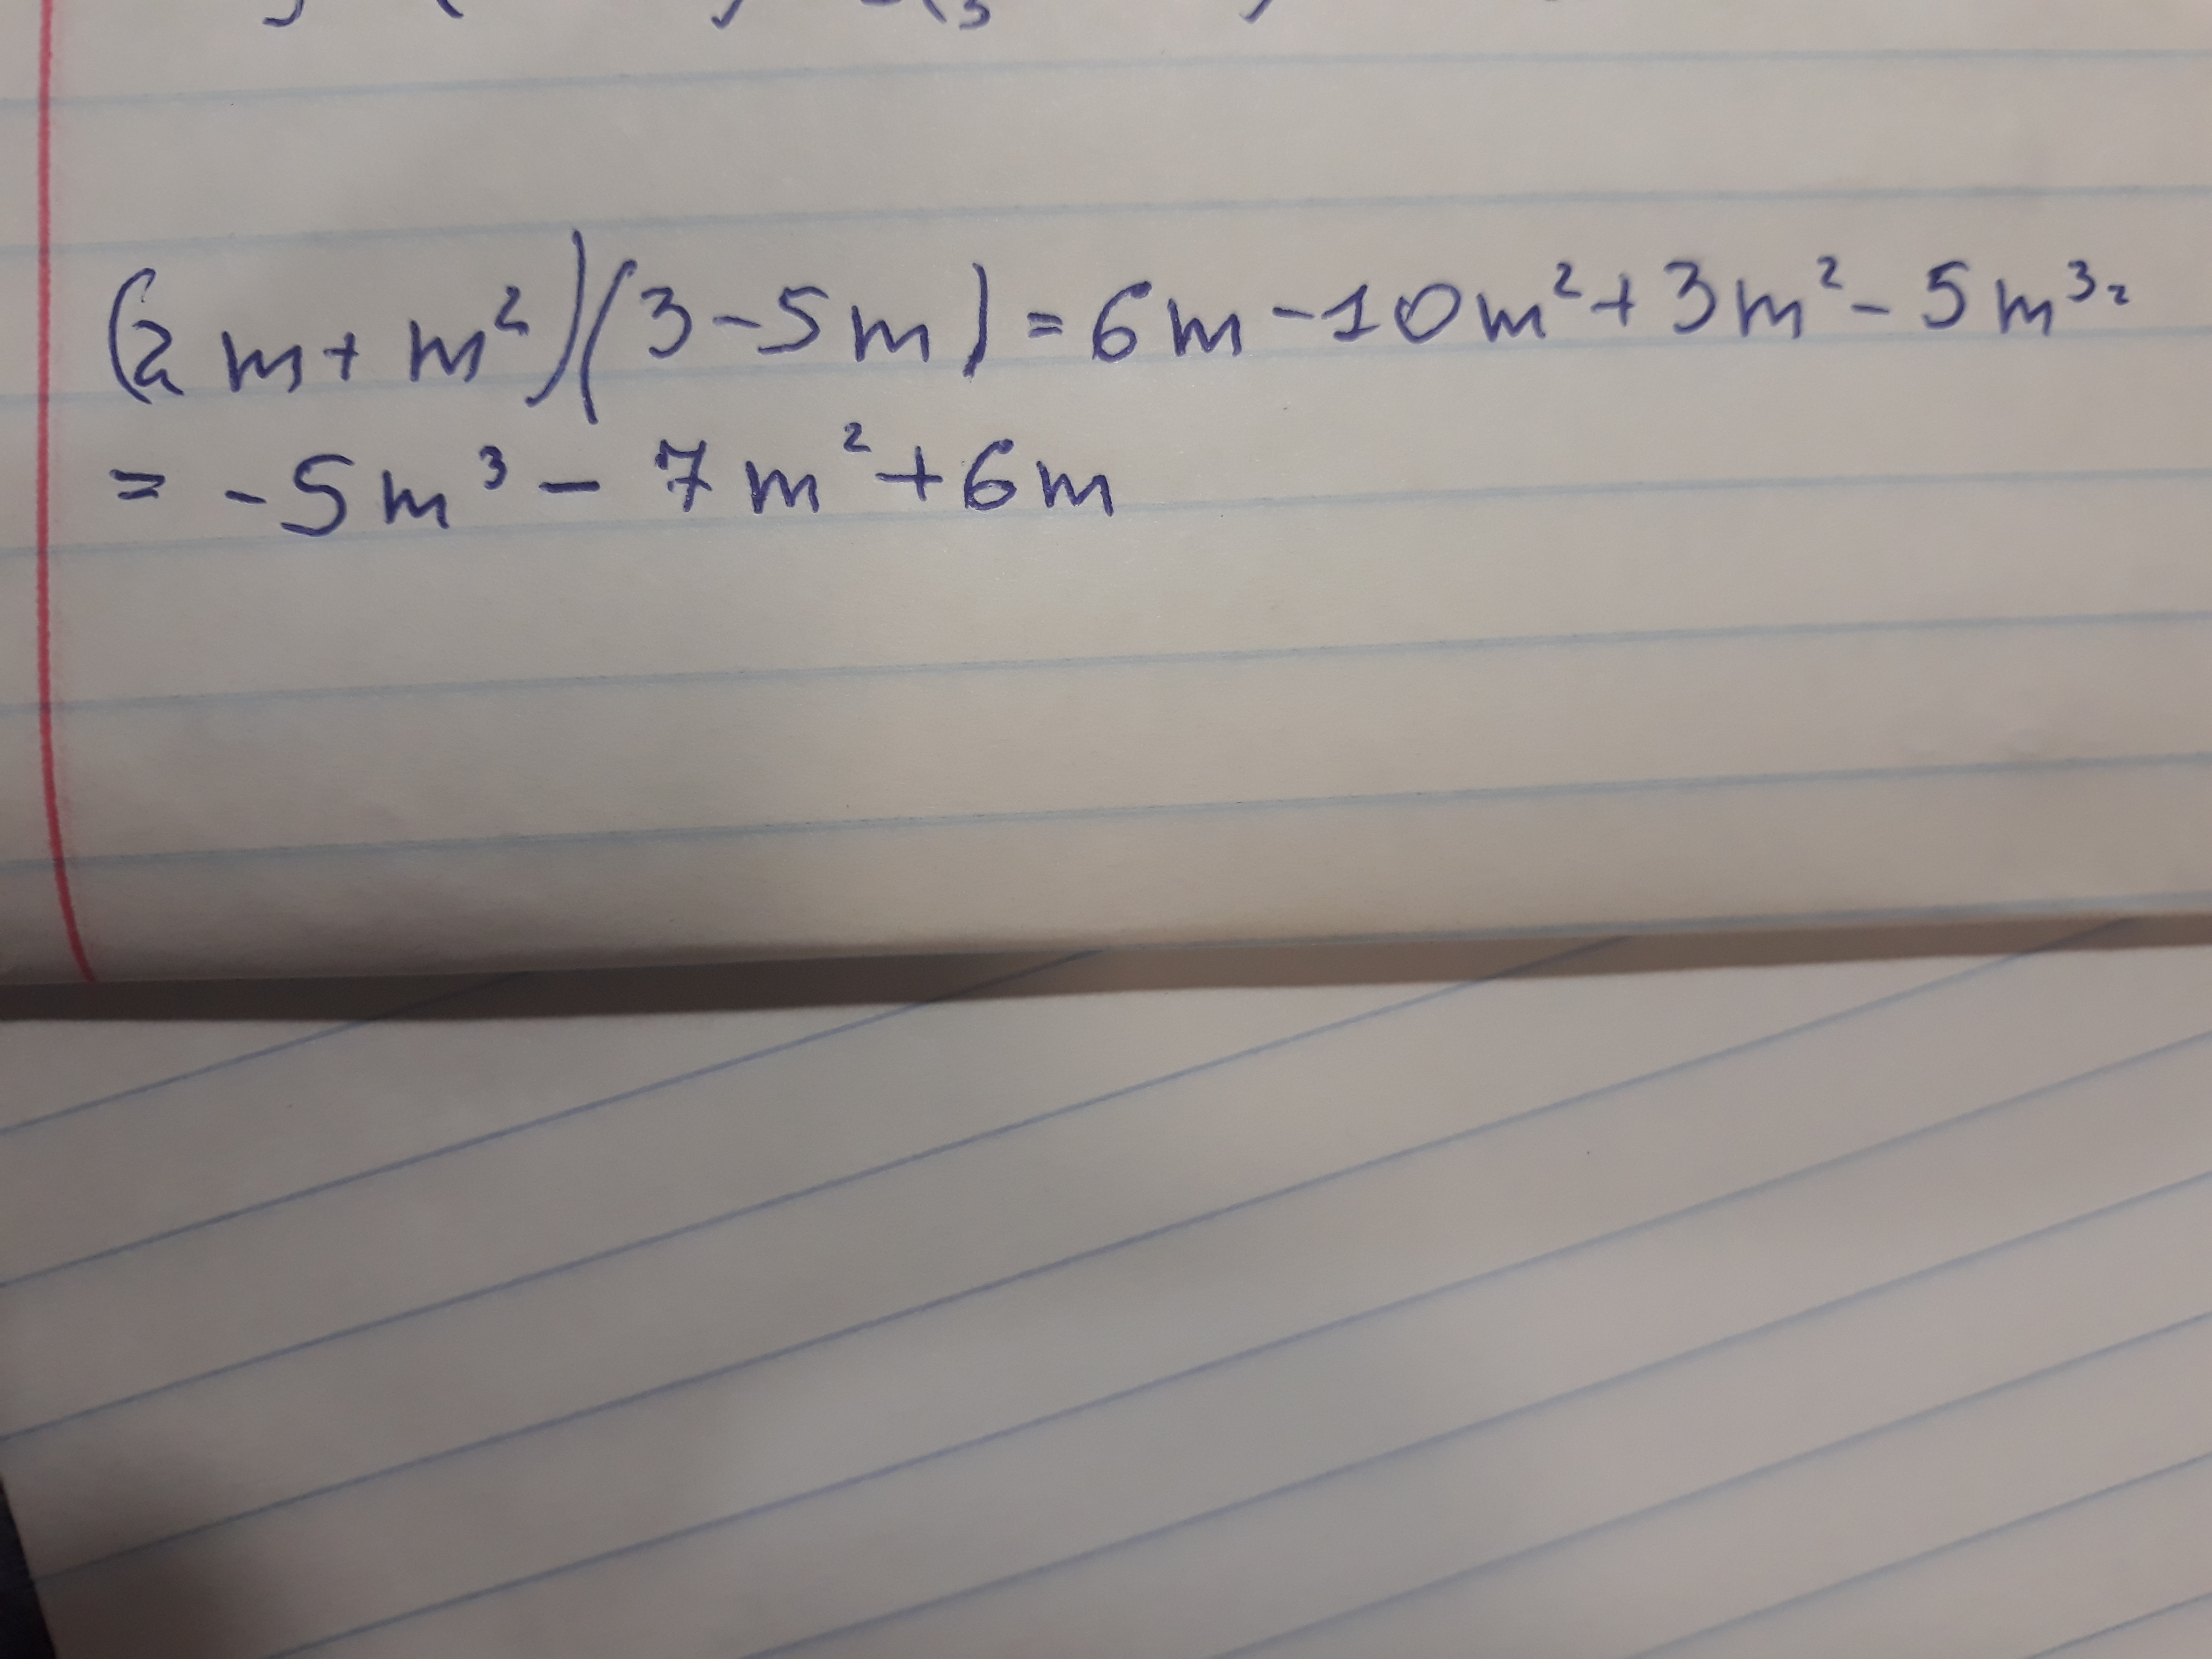 (2m+m²)(3-5m)=6m-10m²+3m²-5m³=
= -5m³-7m²+6m